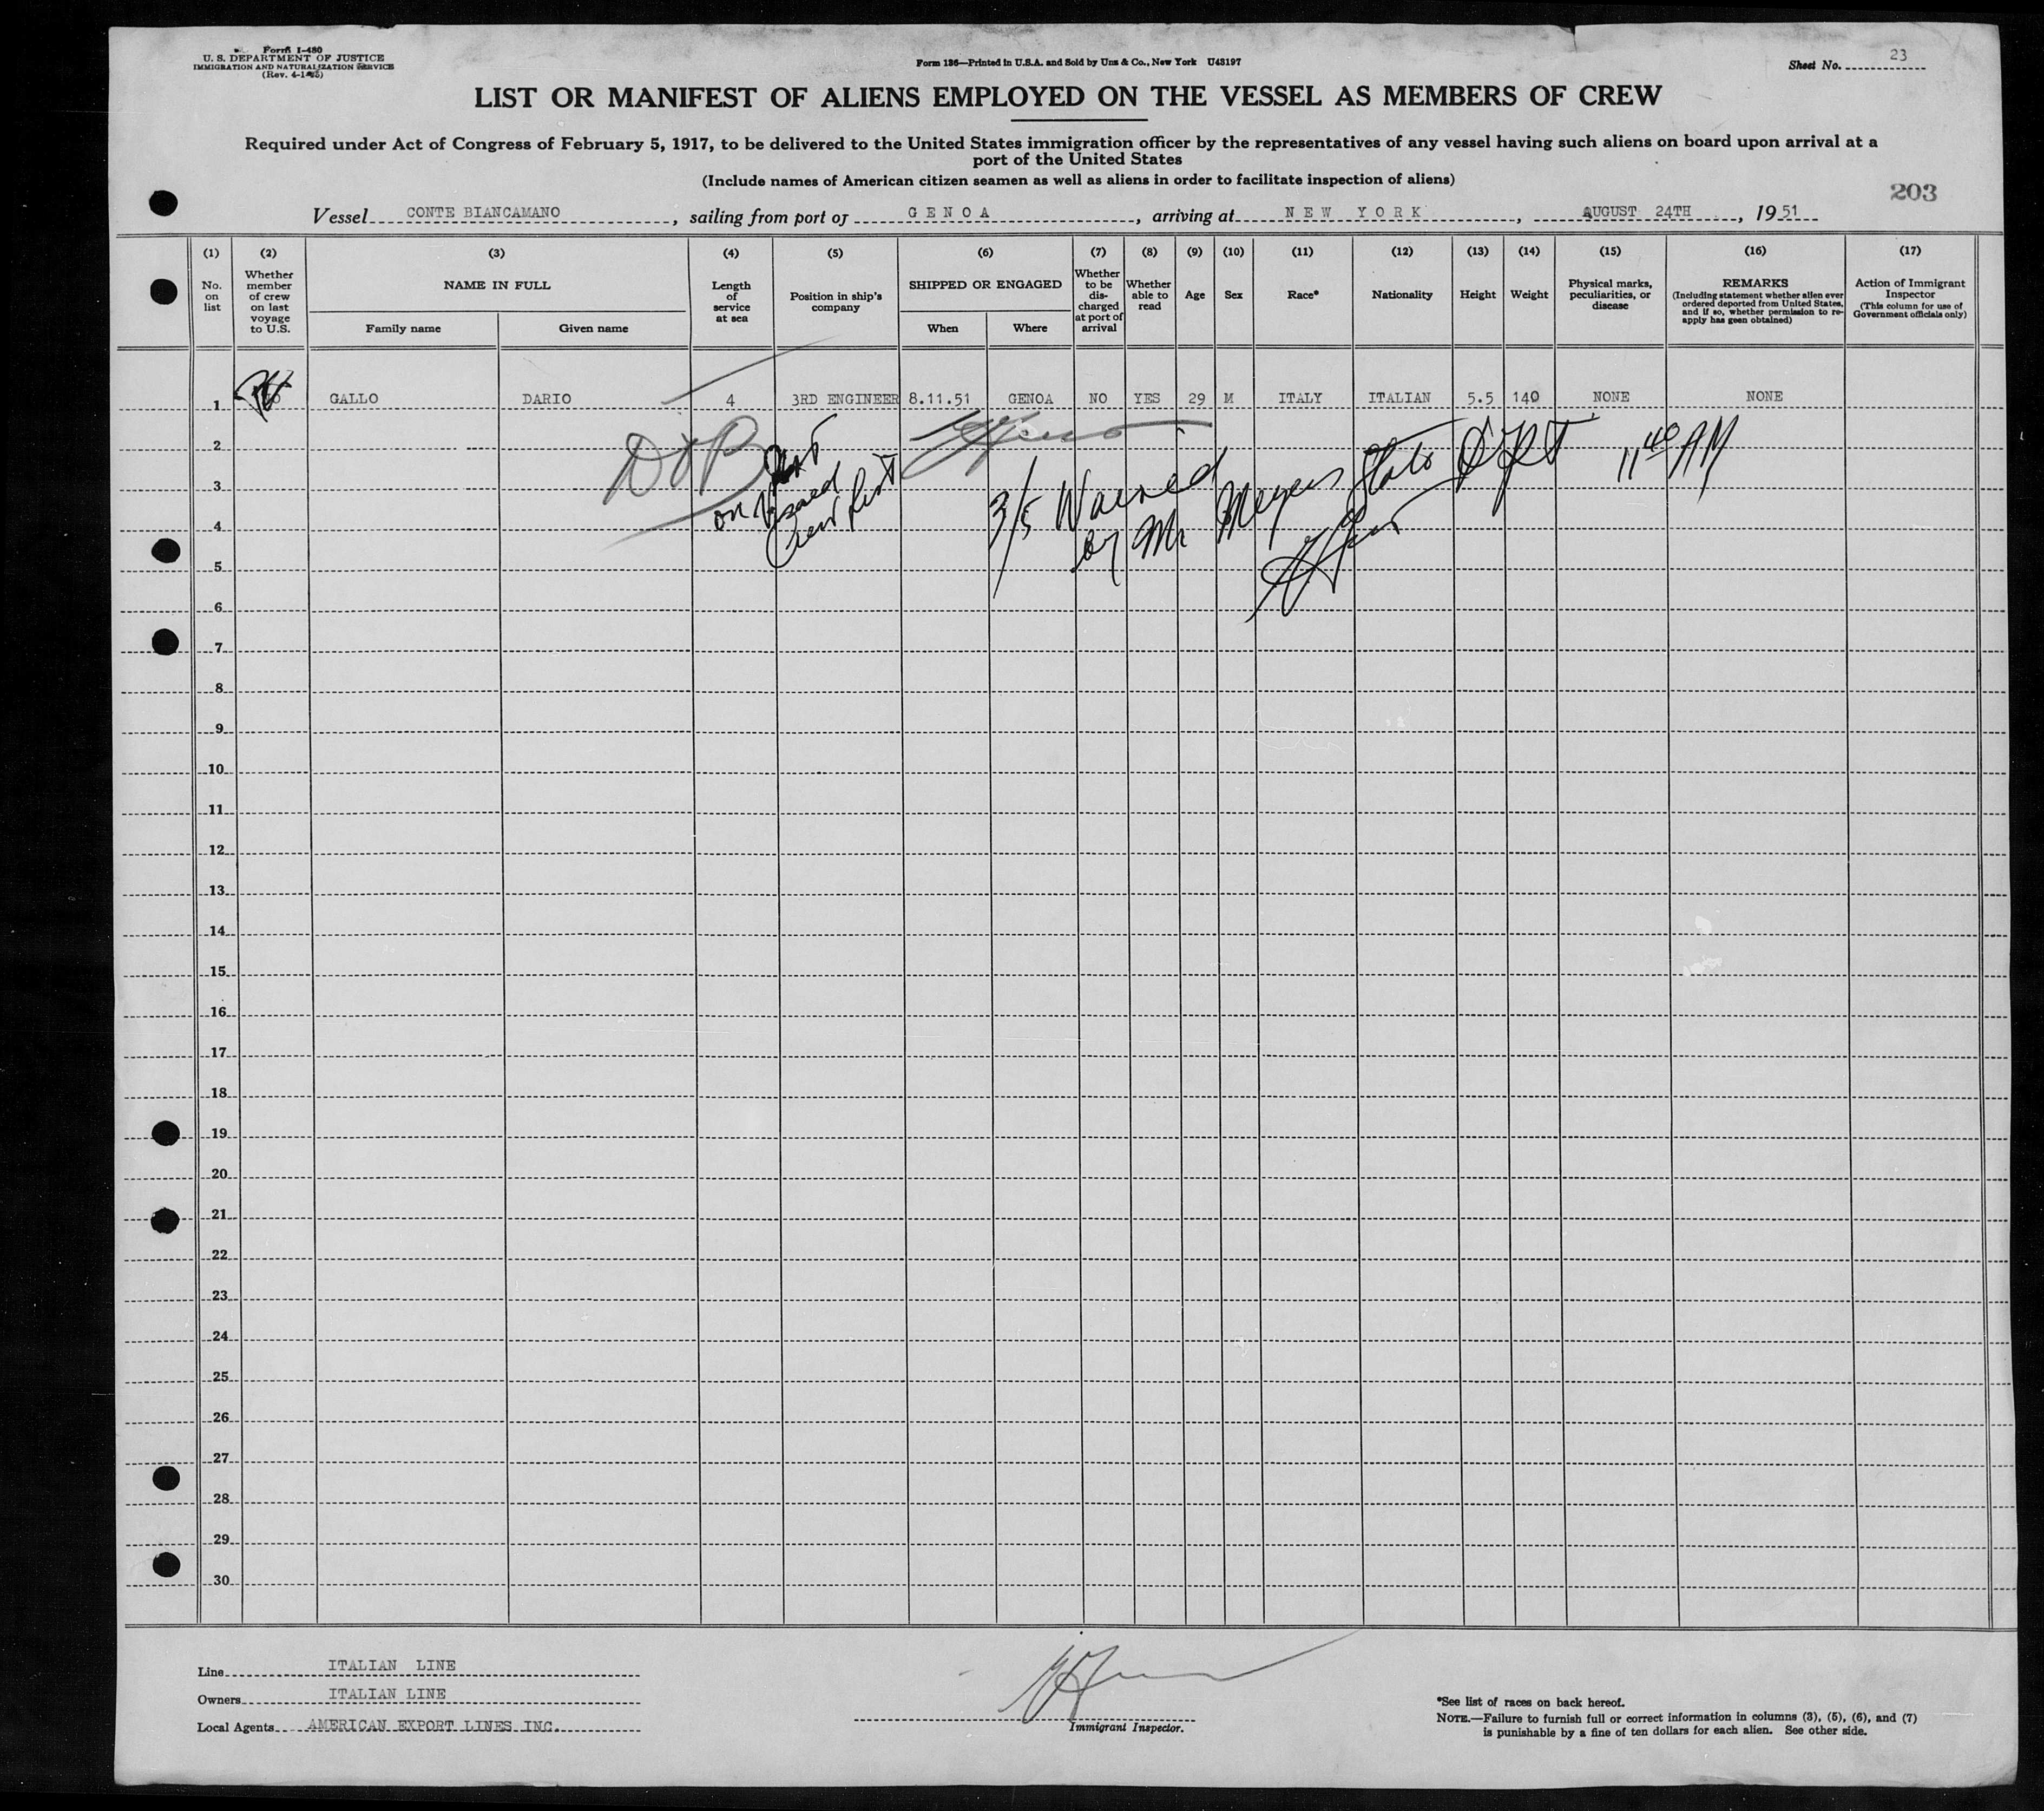 Form I-480
U. S. DEPARTMENT OF JUSTICE
IMMIGRATION AND NATURALIZATION SERVICE
Form 136—Printed in U.S.A. and Sold by Unz & Co., New York U43197
Sheet No. 23
LIST OR MANIFEST OF ALIENS EMPLOYED ON THE VESSEL AS MEMBERS OF CREW
Required under Act of Congress of February 5, 1917, to be delivered to the United States immigration officer by the representatives of any vessel having such aliens on board upon arrival at a
port of the United States
(Include names of American citizen seamen as well as aliens in order to facilitate inspection of aliens)
203
Vessel CONTE BIANCAMANO, sailing from port of GENOA, arriving at NEW YORK, AUGUST 24TH, 1951
(1) (2) (3) (4) (5) (6) (7) (8) (9) (10) (11) (12) (13) (14) (15) (16) (17)
No. on list
Whether member of crew on last voyage to U.S.
NAME IN FULL
Family name
Given name
Length of service at sea
Position in ship's company
SHIPPED OR ENGAGED
When
Where
Whether to be discharged at port of arrival
Whether able to read
Age
Sex
Race*
Nationality
Height
Weight
Physical marks, peculiarities, or disease
REMARKS
(Including statement whether alien ever ordered deported from United States, and if so, whether permission to re-apply has geen obtained)
Action of Immigrant Inspector
(This column for use of Government officials only)
1 GALLO DARIO 4 3RD ENGINEER 8.11.51 GENOA NO YES 29 M ITALY ITALIAN 5.5 140 NONE NONE
D+B Not
on Visaed
Crew list
3/5 Waived
by Mr Meyers State Dept 11 40 AM
2
3
4
5
6
7
8
9
10
11
12
13
14
15
16
17
18
19
20
21
22
23
24
25
26
27
28
29
30
Line ITALIAN LINE
Owners ITALIAN LINE
Local Agents AMERICAN EXPORT LINES INC.
Immigrant Inspector.
*See list of races on back hereof.
NOTE.—Failure to furnish full or correct information in columns (3), (5), (6), and (7)
is punishable by a fine of ten dollars for each alien. See other side.